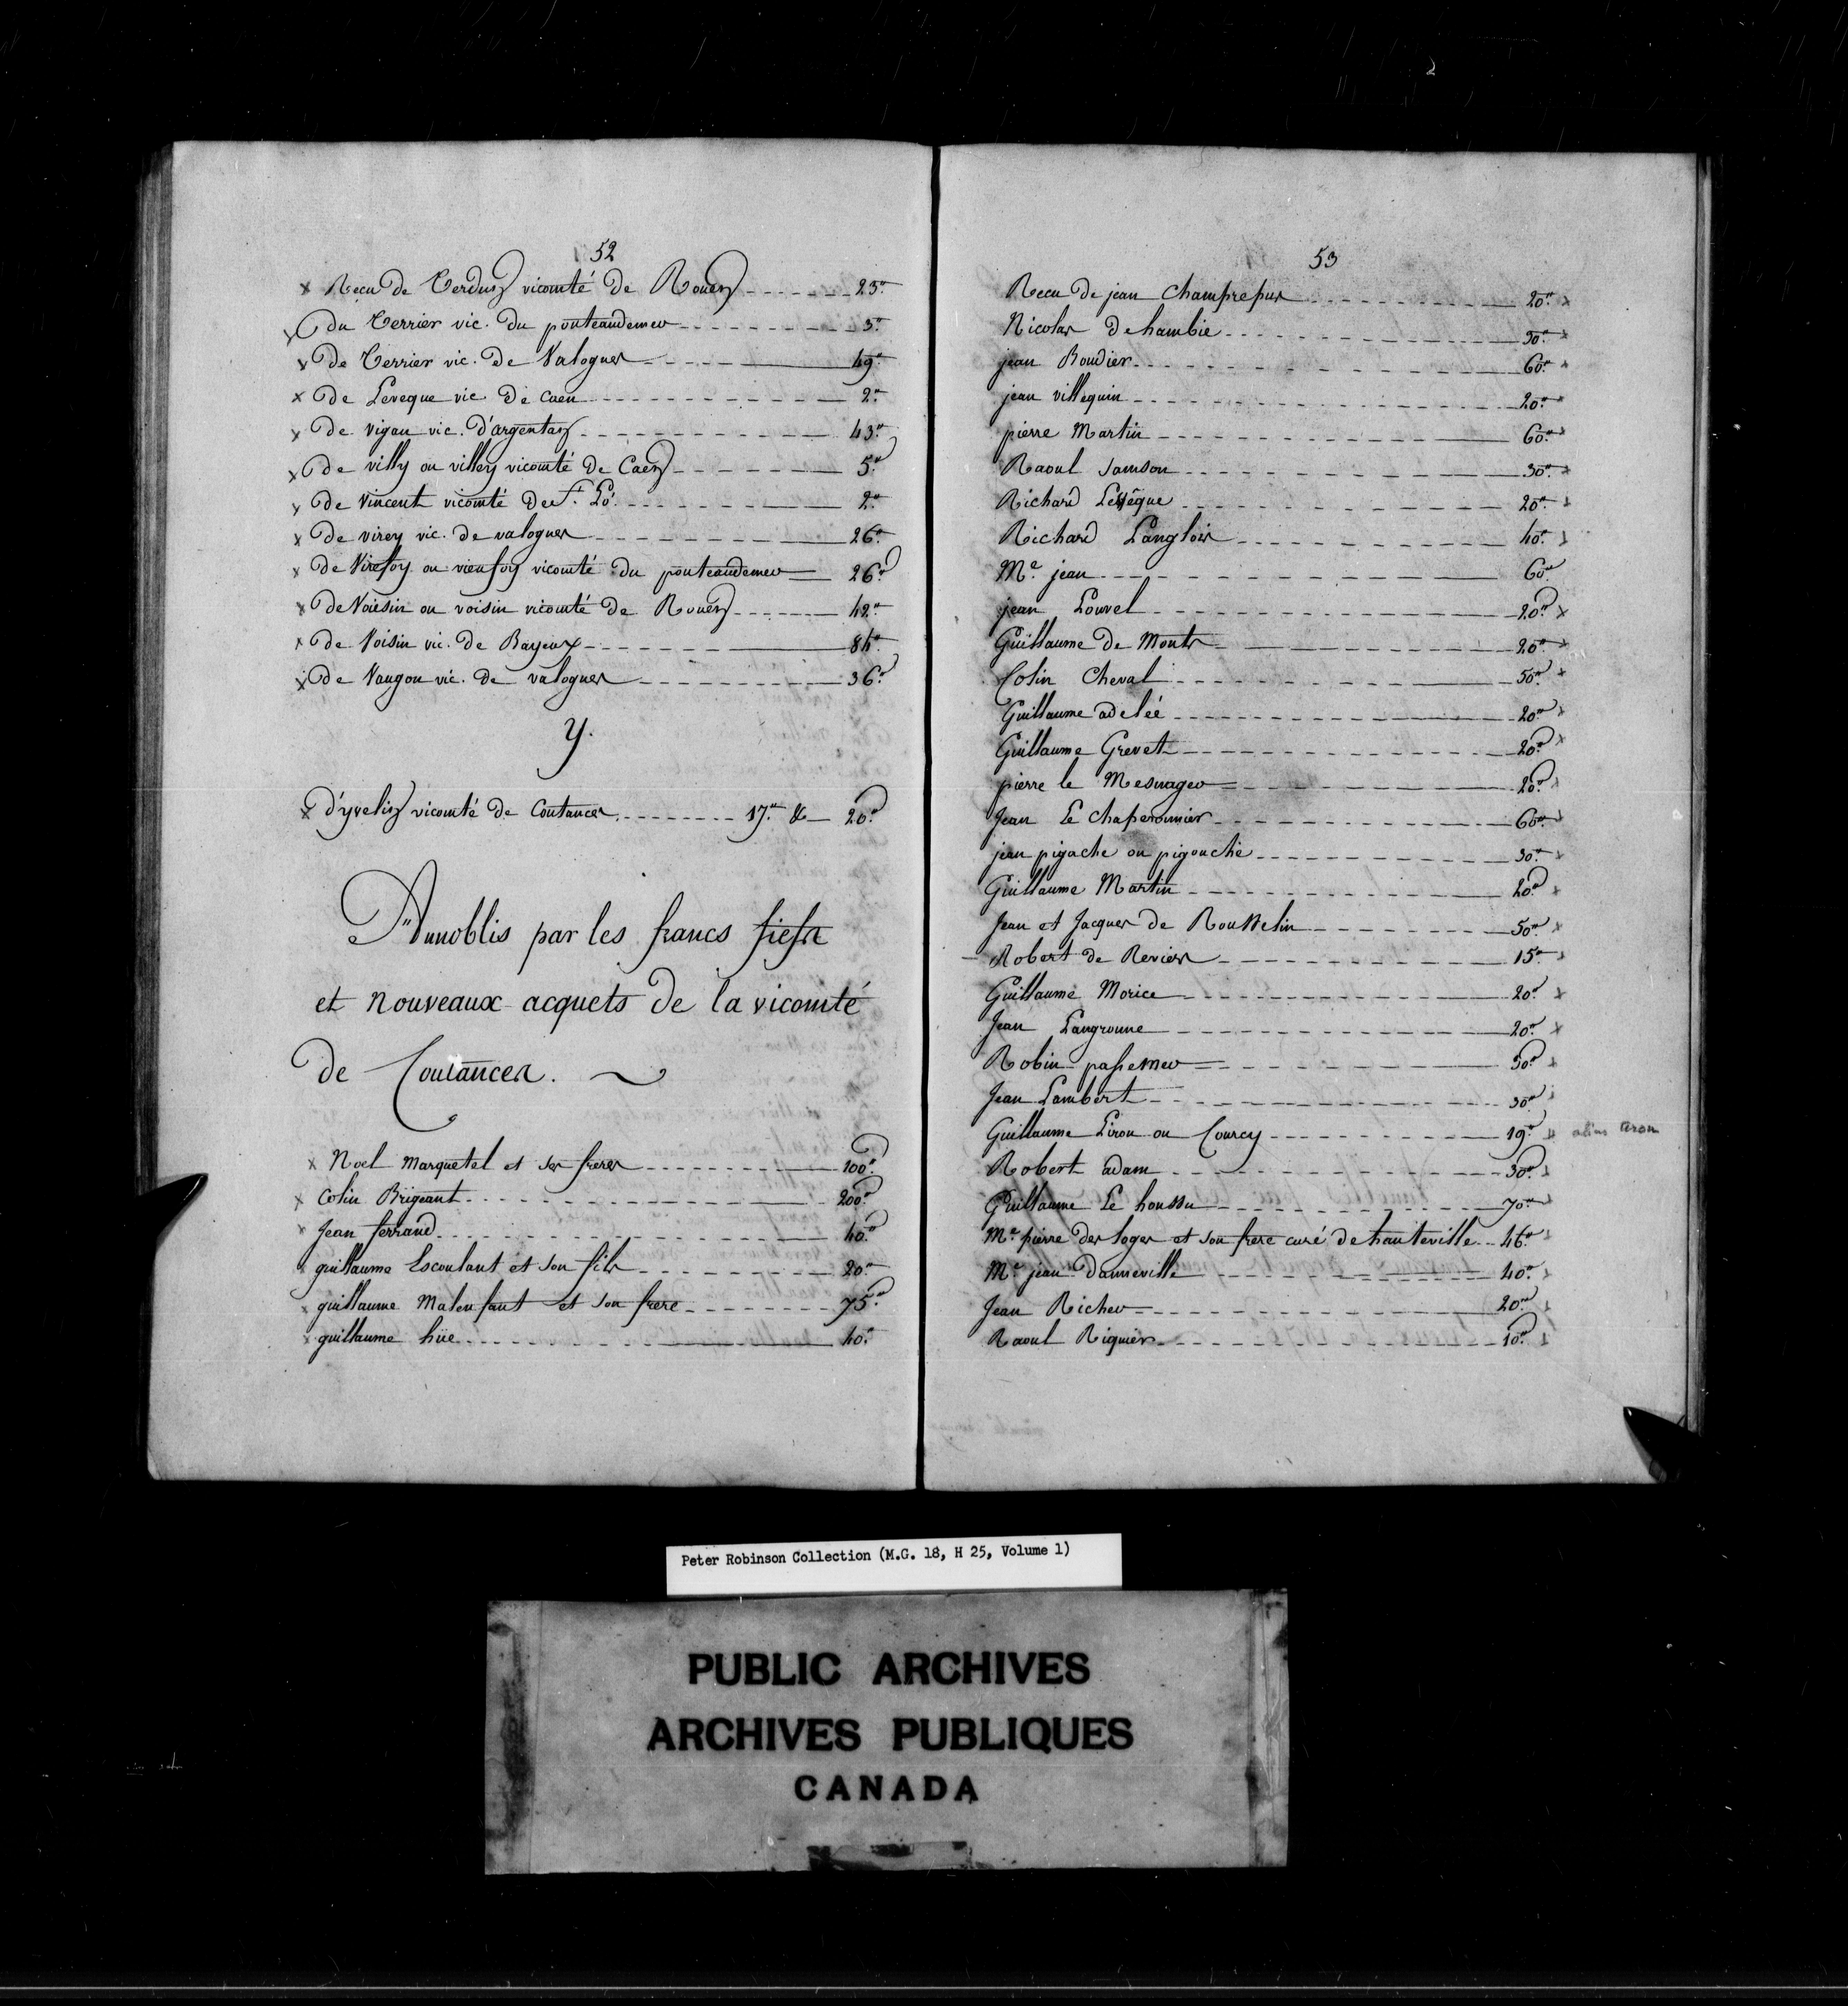 52
x Recu de Verdun vicomté de Rouen ------ 23.tt
x du Verrier vic. du ponteaudemer --------- 3.tt
x de Verrier vic. de Valognes ------ 49.tt
x de Leveque vic. de Caen ------------ 2.tt
x de vigan vic. d'argentan ------------ 43.tt
x de villy ou villey vicomté de Caen ------ 5.tt
x de Vincent vicomté de St. Lô. -------- 2.tt
x de virey vic. de valognes ---------- 26.tt
x de Virefoy ou vieufoy vicomté du ponteaudemer — 26.tt
x de Voiesin ou voisin vicomté de Rouen ------ 42.tt
x de Voisin vic. de Bayeux ------- 84.tt
x de Vaugou vic. de valognes --------- 36.tt
y.
x d'yvelin vicomté de Coutances -------- 17.tt & — 20.tt
Annoblis par les francs fiefs
et nouveaux acquets de la vicomté
de Coutances. ~
x Noel Marquetel et ses freres ---------- 100.tt
x Colin Brigeant ------------- 200.tt
x Jean ferrand ------------- 40.tt
x guillaume Escoulant et son fils --------- 20.tt
x guillaume Malenfant et son frere -------- 75.tt
x guillaume hüe ------------- 40.tt
53
Recu de jean Champrepus ------------- 20.tt x
Nicolas de hambie ------------- 30.tt x
jean Boudier ------------- 60.tt x
jean villequin ------------- 20.tt x
pierre Martin ------------- 60.tt x
Raoul Samson ------------- 30.tt x
Richard Levêque ------------- 20.tt x
Richard Langlois ------------- 40.tt x
Me. jean ------------- 60.tt
jean Louvel ------------- 20.tt x
Guillaume de Monts ------------- 20.tt x
Colin Cheval ------------- 50.tt x
Guillaume adeleé ------------- 20.tt x
Guillaume Grevet ------------- 20.tt x
pierre le Mesnager ------------- 20.tt x
Jean Le chaperonnier ------------- 60.tt x
jean pigache ou pigouche ------------- 30.tt x
Guillaume Martin ------------- 20.tt x
Jean et Jacques de Rousselin ------- 50.tt x
- Robert de Reviers ------------- 15.tt x
Guillaume Morice ------------- 20.tt x
Jean Langronne ------------- 20.tt x
Robin passemer ------------- 30.tt x
Jean Lambert ------------- 30.tt x
Guillaume Liron ou Courcy ------------- 19.tt x alias
Robert adam ------------- 30.tt x
Guillaume Le houssu ------------- 70.tt x
Me. pierre des loges et son frere curé de hauteville -- 46.tt x
Me. jean Danneville ------------- 40.tt x
Jean Richer ------------- 20.tt x
Raoul Riquier ------------- 10.tt x
Peter Robinson Collection (M.G. 18, H 25, Volume 1)
PUBLIC ARCHIVES
ARCHIVES PUBLIQUES
CANADA